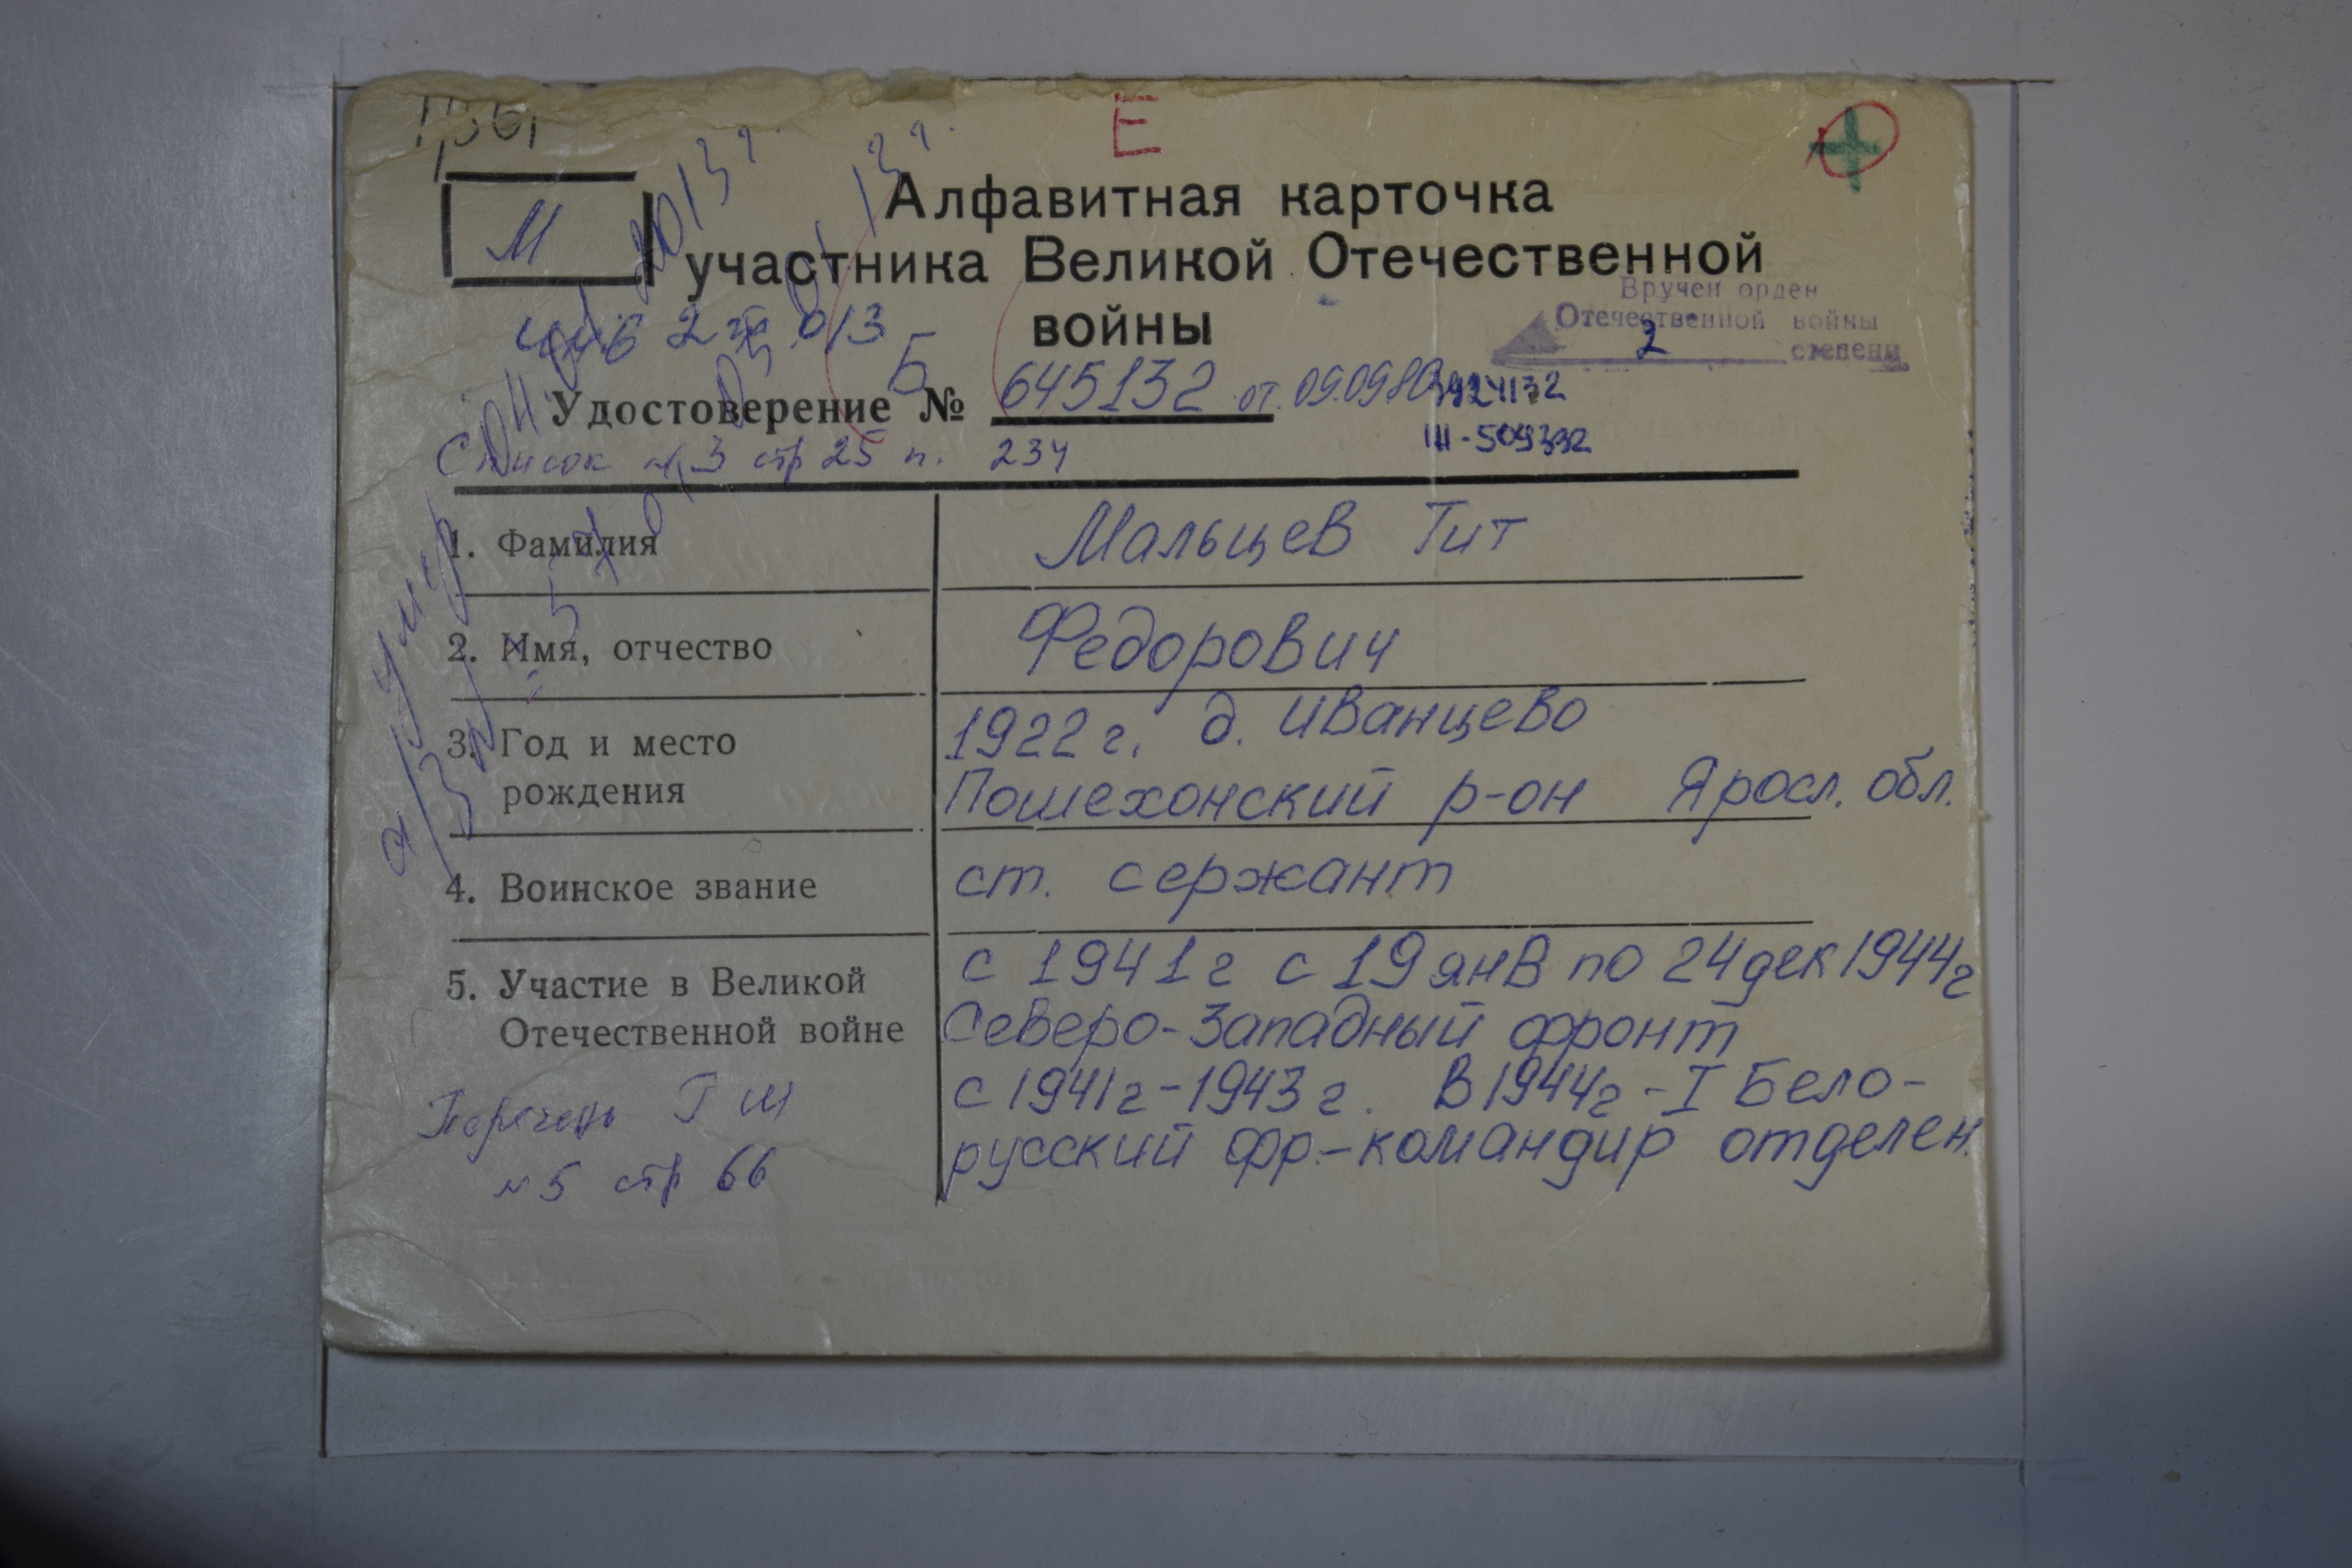 Е
М
Алфавитная карточка
участника Великой Отечественной
войны
Вручен орден
Отечественной войны
2 степени
Б
Удостоверение № 645132 от 09.09.80
3924132
III-509332
Список №3 стр 25 п. 234
умер
1. Фамилия Мальцев Тит
2. Имя, отчество Федорович
3. Год и место рождения 1922 г. д. Иванцево
Пошехонский р-он Яросл. обл.
4. Воинское звание ст. сержант
5. Участие в Великой Отечественной войне с 1941г с 19 янв по 24 дек 1944г
Северо-Западный фронт
с 1941г-1943г. В 1944г-I Бело-
русский фр.-командир отделен.
Перечень
№5 стр 66